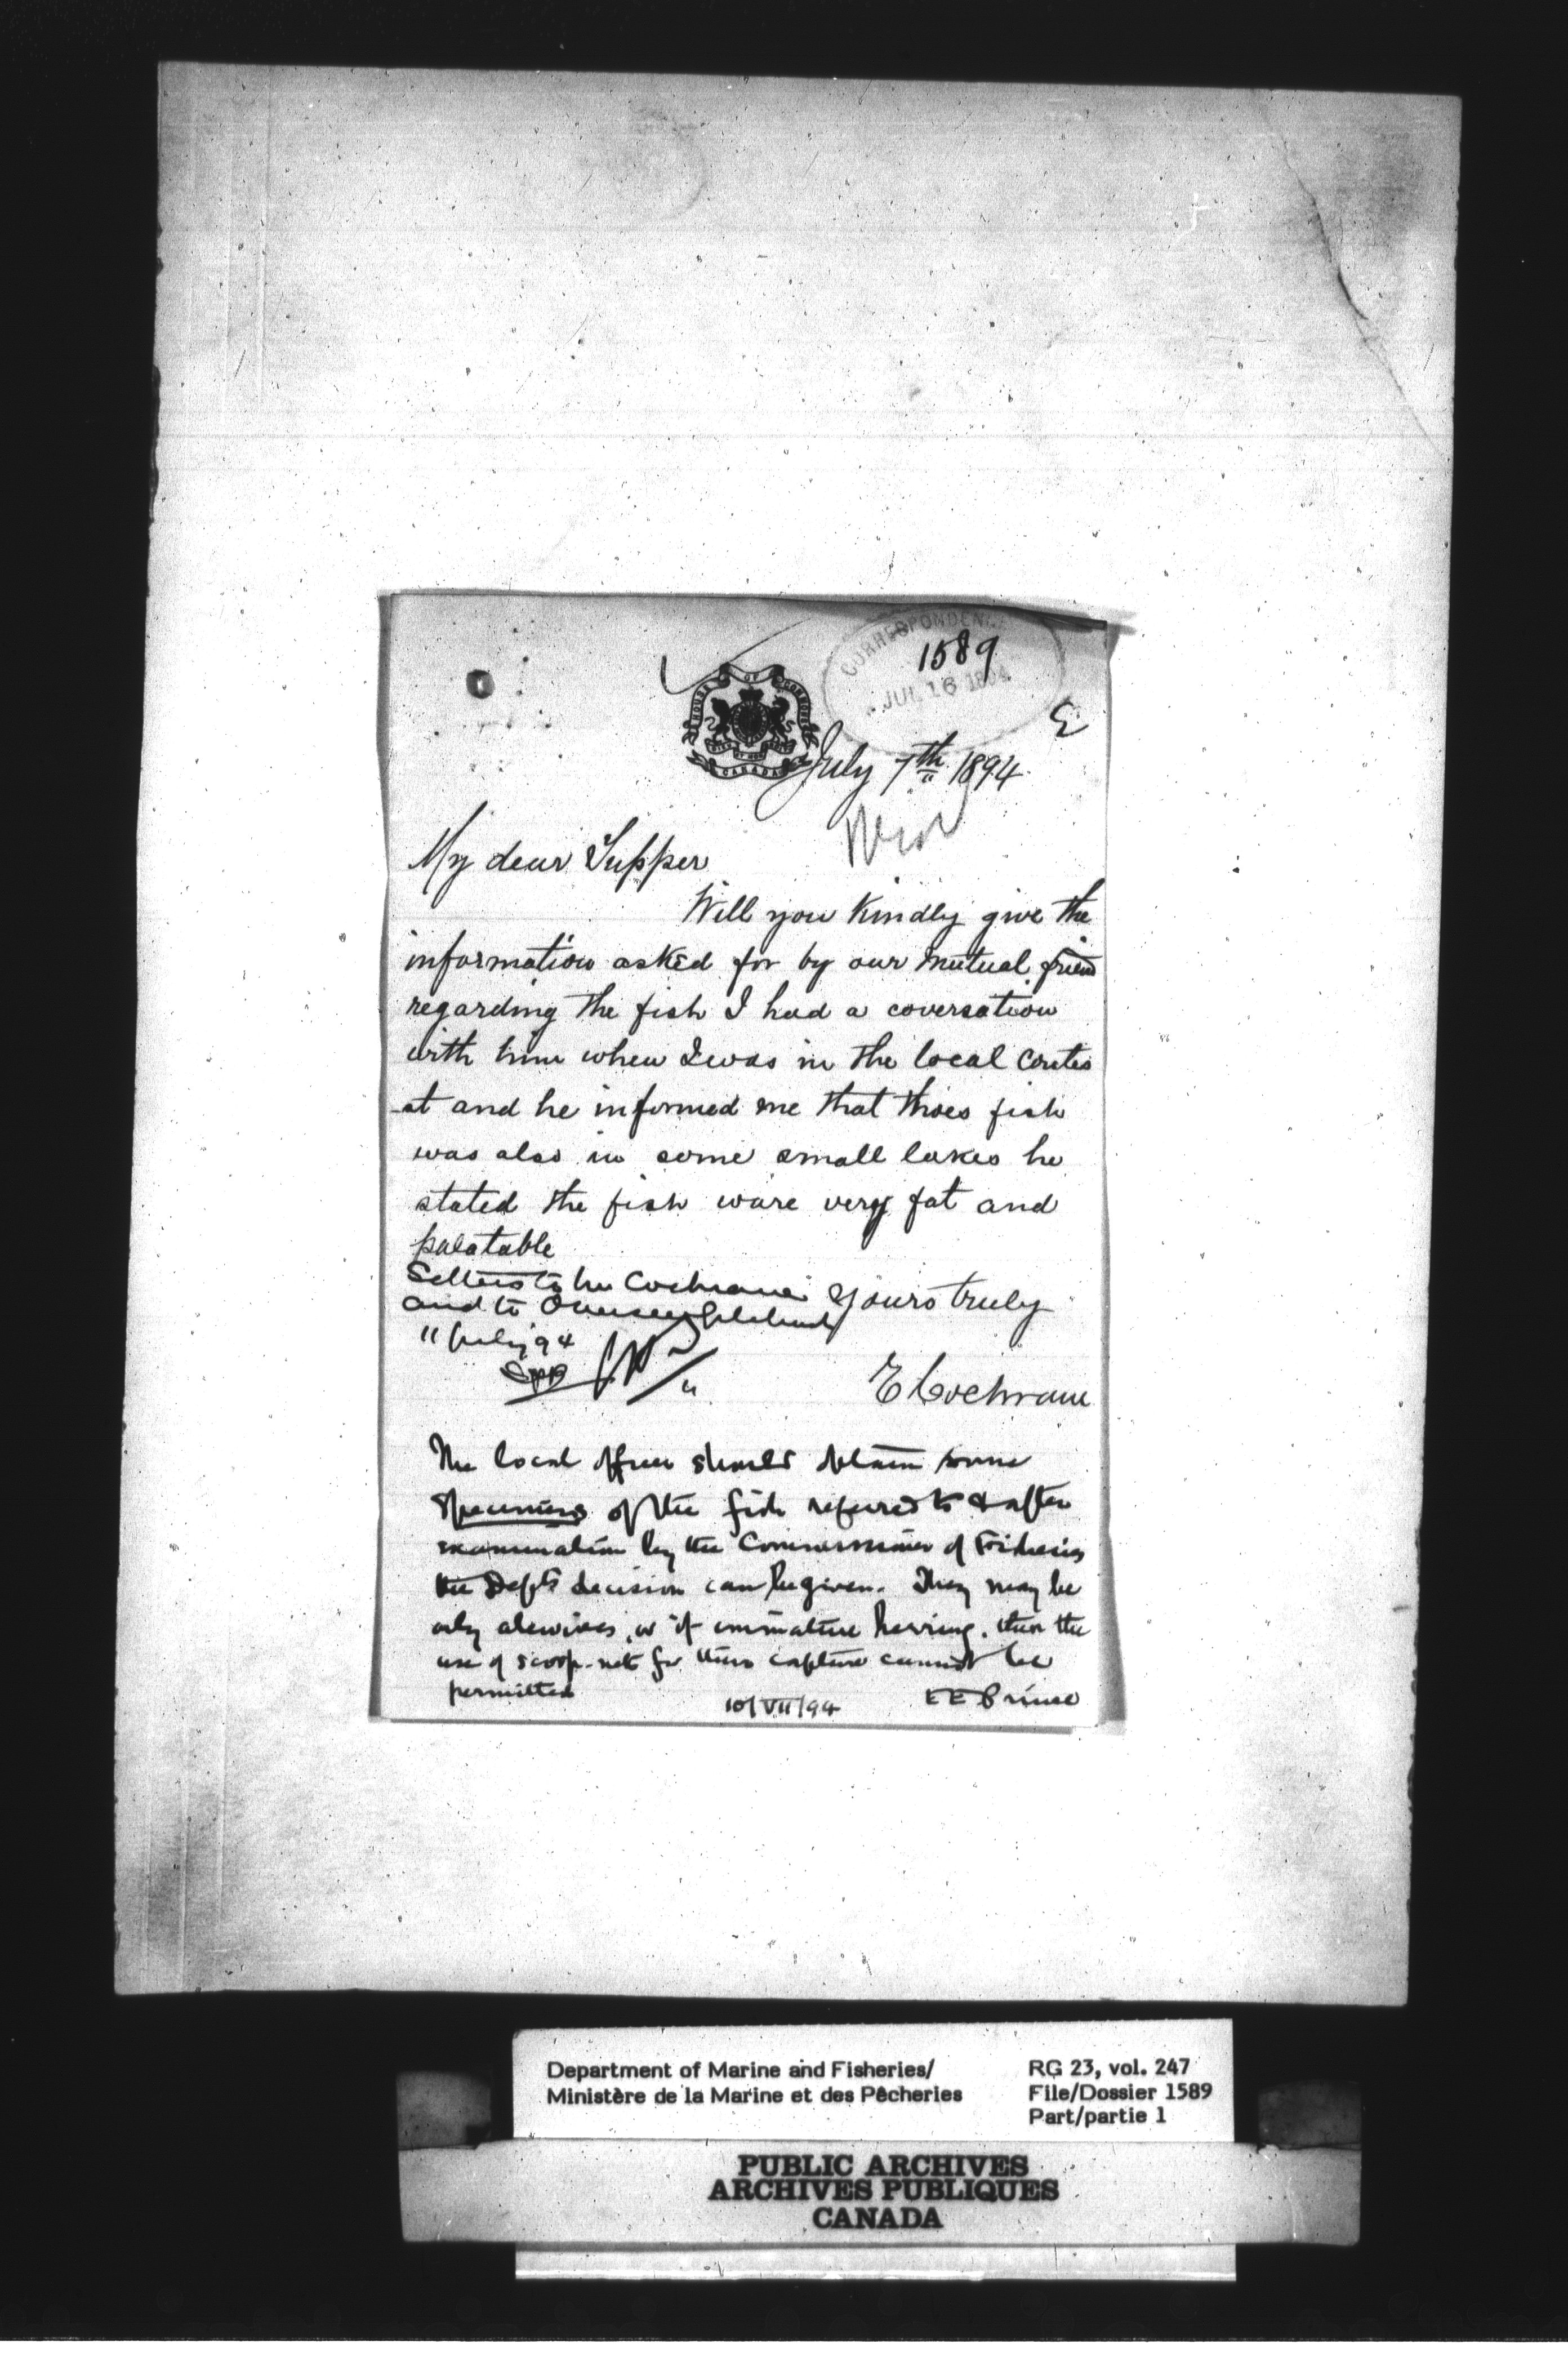 CORRESPONDENCE
1589
JUL 16 1894
HOUSE OF COMMONS
CANADA
July 7th 1894
My dear Tupper
Will you kindly give the
information asked for by our mutual friend
regarding the fish I had a coversation
with him when I was in the local contes
-st and he informed me that thoes fish
was also in some small lakes he
stated the fish ware very fat and
palatable
Letters to Mr Cochrane
Yours truly
and to Overseer
11 July '94
E Cochrane
The local officer should obtain some
specimens of the fish referred to & after
examination by the Commissioner of Fisheries
the Dept's decision can be given. They may be
only alewives, or if immature herring, then the
use of scoop-nets for their capture cannot be
permitted
10/VII/94
EEPrince
Department of Marine and Fisheries/
Ministère de la Marine et des Pêcheries
RG 23, vol. 247
File/Dossier 1589
Part/partie 1
PUBLIC ARCHIVES
ARCHIVES PUBLIQUES
CANADA